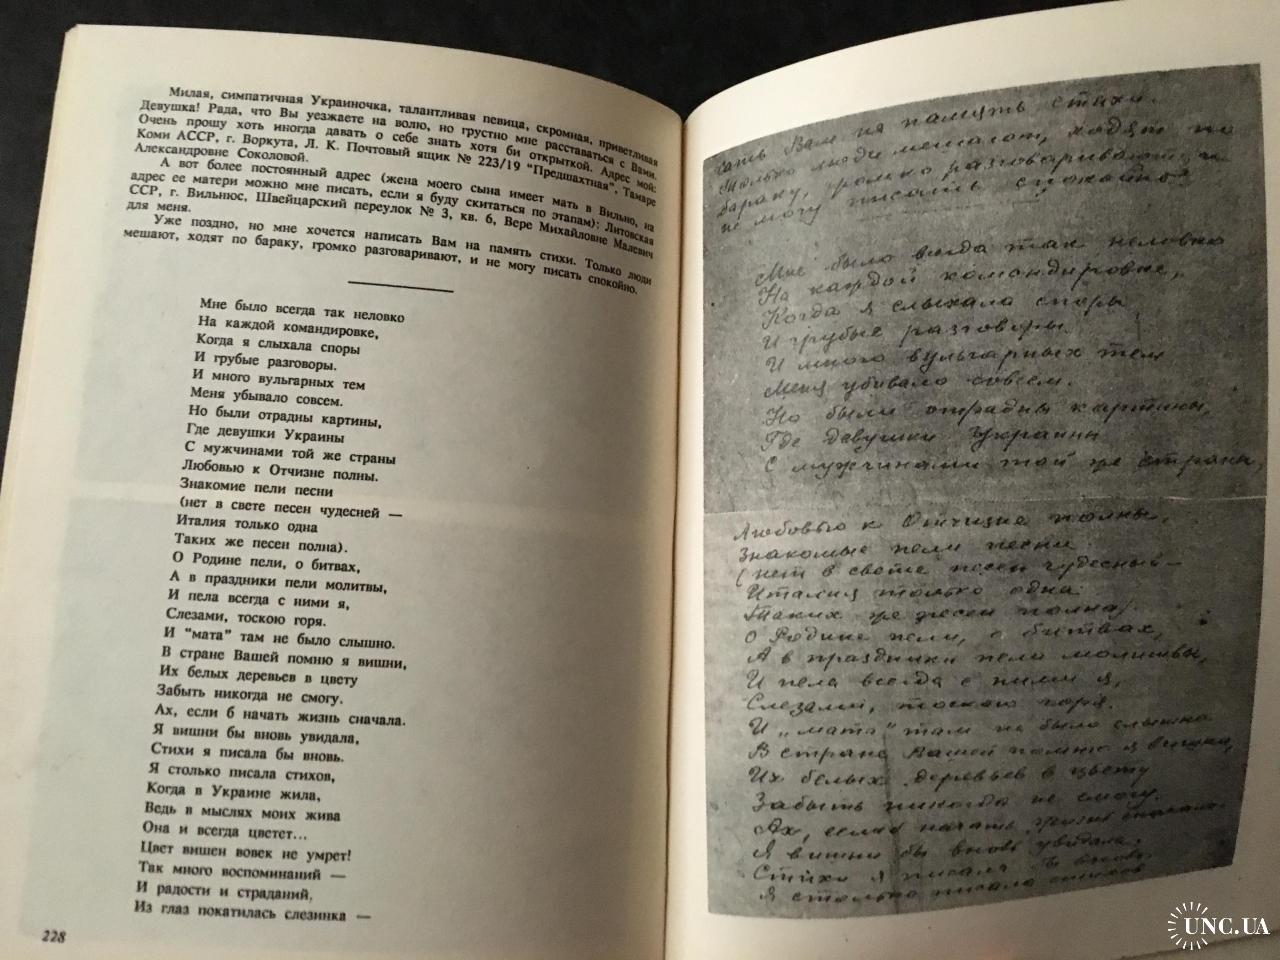 Милая, симпатичная Украиночка, талантливая певица, скромная, приветливая
Девушка! Рада, что Вы уезжаете на волю, но грустно мне расставаться с Вами.
Очень прошу хоть иногда давать о себе знать хотя би открыткой. Адрес мой:
Коми АССР, г. Воркута, Л. К. Почтовый ящик № 223/19 "Предшахтная", Тамаре
Александровне Соколовой.
А вот более постоянный адрес (жена моего сына имеет мать в Вильно, на
адрес ее матери можно мне писать, если я буду скитаться по этапам): Литовская
ССР, г. Вильнюс, Швейцарский переулок № 3, кв. 6, Вере Михайловне Малевич
для меня.
Уже поздно, но мне хочется написать Вам на память стихи. Только люди
мешают, ходят по бараку, громко разговаривают, и не могу писать спокойно.
Мне было всегда так неловко
На каждой командировке,
Когда я слыхала споры
И грубые разговоры.
И много вульгарных тем
Меня убывало совсем.
Но были отрадны картины,
Где девушки Украины
С мужчинами той же страны
Любовью к Отчизне полны.
Знакомие пели песни
(нет в свете песен чудесней —
Италия только одна
Таких же песен полна).
О Родине пели, о битвах,
А в праздники пели молитвы,
И пела всегда с ними я,
Слезами, тоскою горя.
И "мата" там не было слышно.
В стране Вашей помню я вишни,
Их белых деревьев в цвету
Забыть никогда не смогу.
Ах, если б начать жизнь сначала.
Я вишни бы вновь увидала,
Стихи я писала бы вновь.
Я столько писала стихов,
Когда в Украине жила,
Ведь в мыслях моих жива
Она и всегда цветет...
Цвет вишен вовек не умрет!
Так много воспоминаний —
И радости и страданий,
Из глаз покатилась слезинка —
228
сать Вам на память стихи.
Только люди мешают, ходят по
бараку, громко разговаривают, и
не могу писать спокойно
Мне было всегда так неловко
На каждой командировке,
Когда я слыхала споры
И грубые разговоры.
И много вульгарных тем
Меня убивало совсем.
Но были отрадны картины,
Где девушки Украины
С мужчинами той же страны
Любовью к Отчизне полны.
Знакомые пели песни
(нет в свете песен чудесный —
Италия только одна
Таких же песен полна).
О Родине пели, о битвах,
А в праздники пели молитвы,
И пела всегда с ними я,
Слезами, тоскою горя.
И „мата" там не было слышно
В стране Вашей помню я вишни,
Их белых деревьев в цвету
Забыть никогда не смогу.
Ах, если б начать жизнь сначала.
Я вишни бы вновь увидала,
Стихи я писала бы вновь.
Я столько писала стихов
UNC.UA